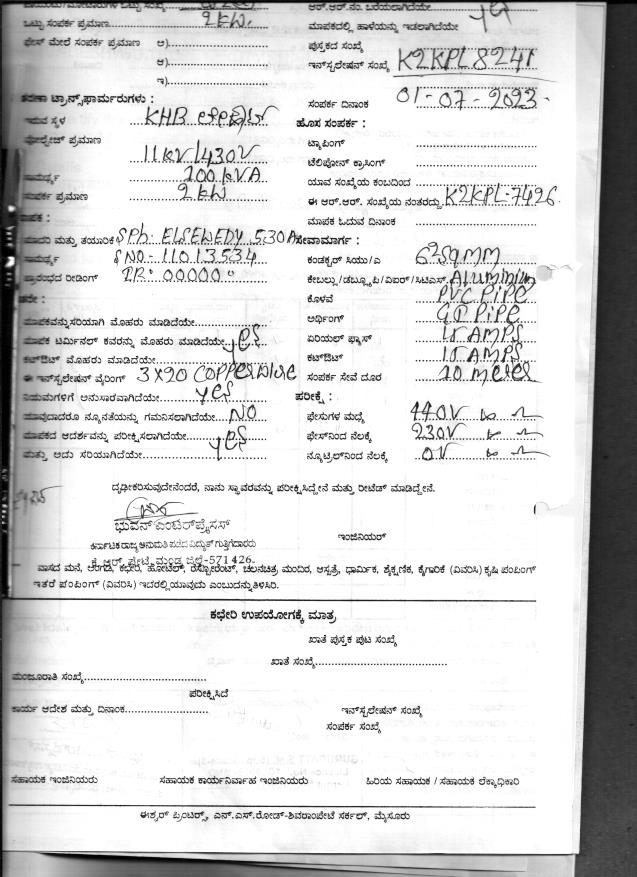 ಒಟ್ಟು ಸಂಪರ್ಕ ಪ್ರಮಾಣ 2 KW.
ಫೇಸ್ ಮೇಲೆ ಸಂಪರ್ಕ ಪ್ರಮಾಣ ಅ)
ಆ)
ಇ)
ಟ್ರಾನ್ಸ್‌ಫಾರ್ಮರುಗಳು :
ಇರುವ ಸ್ಥಳ KHB
ವೋಲ್ಟೇಜ್ ಪ್ರಮಾಣ
11KV/430V
ಸಾಮರ್ಥ್ಯ 100 KVA
ಸಂಪರ್ಕ ಪ್ರಮಾಣ 2 KW
ಮಾಪಕ :
ಮಾದರಿ ಮತ್ತು ತಯಾರಿಕೆ SPh. ELSEWEDY 5.30A
ಸಾಮರ್ಥ್ಯ SNO - 11013534
ಪ್ರಾರಂಭದ ರೀಡಿಂಗ್ IR: 00000.0
ಮಾಪಕವನ್ನು ಸರಿಯಾಗಿ ಮೊಹರು ಮಾಡಿದೆಯೇ
ಮಾಪಕ ಟರ್ಮಿನಲ್ ಕವರನ್ನು ಮೊಹರು ಮಾಡಿದೆಯೇ yes
ಕಟ್‌ಔಟ್ ಮೊಹರು ಮಾಡಿದೆಯೇ
ಈ ಇನ್‌ಸ್ಟಲೇಷನ್ ವೈರಿಂಗ್ 3X20 COPPER WIRE
ನಿಯಮಗಳಿಗೆ ಅನುಸಾರವಾಗಿದೆಯೇ yes
ಯಾವುದಾದರೂ ನ್ಯೂನತೆಯನ್ನು ಗಮನಿಸಲಾಗಿದೆಯೇ NO
ಮಾಪಕದ ಆದರ್ಶವನ್ನು ಪರೀಕ್ಷಿಸಲಾಗಿದೆಯೇ
ಮತ್ತು ಅದು ಸರಿಯಾಗಿದೆಯೇ yes
ಆರ್.ಆರ್.ನಂ. ಬರೆಯಲಾಗಿದೆಯೇ
ಮಾಪಕದಲ್ಲಿ ಹಾಳೆಯನ್ನು ಇಡಲಾಗಿದೆಯೇ yes
ಪುಸ್ತಕದ ಸಂಖ್ಯೆ
ಇನ್‌ಸ್ಟಲೇಷನ್ ಸಂಖ್ಯೆ K2KPL8241
ಸಂಪರ್ಕ ದಿನಾಂಕ 01-07-2023
ಹೊಸ ಸಂಪರ್ಕ :
ಟ್ಯಾಪಿಂಗ್
ಟೆಲಿಫೋನ್ ಕ್ರಾಸಿಂಗ್
ಯಾವ ಸಂಖ್ಯೆಯ ಕಂಬದಿಂದ
ಈ ಆರ್.ಆರ್. ಸಂಖ್ಯೆಯ ನಂತರದ್ದು K2KPL-7426
ಮಾಪಕ ಓದುವ ದಿನಾಂಕ
ಸೇವಾಮಾರ್ಗ :
ಕಂಡಕ್ಟರ್ ಸಿಯು/ಎ 6 2 Sq MM
ಕೇಬಲ್ಲು/ಡಬ್ಲ್ಯೂಪಿ/ವಿಐಆರ್/ಸಿಟಿಎಸ್ Aluminium
ಕೊಳವೆ PVC PIPE
ಅರ್ಥಿಂಗ್ GI PIPE
ಏರಿಯಲ್ ಫ್ಯೂಸ್ 15 AMPS
ಕಟ್‌ಔಟ್ 15 AMPS
ಸಂಪರ್ಕ ಸೇವೆ ದೂರ 20 meter
ಪರೀಕ್ಷೆ :
ಫೇಸುಗಳ ಮಧ್ಯೆ 440V
ಫೇಸ್‌ನಿಂದ ನೆಲಕ್ಕೆ 230V
ನ್ಯೂಟ್ರಿಲ್‌ನಿಂದ ನೆಲಕ್ಕೆ 0V
ದೃಢೀಕರಿಸುವುದೇನೆಂದರೆ, ನಾನು ಸ್ಥಾವರವನ್ನು ಪರೀಕ್ಷಿಸಿದ್ದೇನೆ ಮತ್ತು ರೀಟೆಡ್ ಮಾಡಿದ್ದೇನೆ.
ಭುವನ್ ಎಂಟರ್‌ಪ್ರೈಸಸ್
ಇಂಜಿನಿಯರ್
ಕರ್ನಾಟಕ ರಾಜ್ಯ ಅನುಮತಿ ಪಡೆದ ವಿದ್ಯುತ್ ಗುತ್ತಿಗೆದಾರರು
ಕೆ.ಆರ್.ಪೇಟೆ, ಮಂಡ್ಯ ಜಿಲ್ಲೆ-571 426.
ವಾಸದ ಮನೆ, ಅಂಗಡಿ, ಕಛೇರಿ, ಹೋಟೆಲ್, ರೆಸ್ಟೋರೆಂಟ್, ಚಲನಚಿತ್ರ ಮಂದಿರ, ಆಸ್ಪತ್ರೆ, ಧಾರ್ಮಿಕ, ಶೈಕ್ಷಣಿಕ, ಕೈಗಾರಿಕೆ (ವಿವರಿಸಿ) ಕೃಷಿ ಪಂಪಿಂಗ್
ಇತರೆ ಪಂಪಿಂಗ್ (ವಿವರಿಸಿ) ಇದರಲ್ಲಿ ಯಾವುದು ಎಂಬುದನ್ನು ತಿಳಿಸಿರಿ.
ಕಛೇರಿ ಉಪಯೋಗಕ್ಕೆ ಮಾತ್ರ
ಖಾತೆ ಪುಸ್ತಕ ಪುಟ ಸಂಖ್ಯೆ
ಖಾತೆ ಸಂಖ್ಯೆ
ಮಂಜೂರಾತಿ ಸಂಖ್ಯೆ
ಪರೀಕ್ಷಿಸಿದೆ
ಕಾರ್ಯ ಆದೇಶ ಮತ್ತು ದಿನಾಂಕ
ಇನ್‌ಸ್ಟಲೇಷನ್ ಸಂಖ್ಯೆ
ಸಂಪರ್ಕ ಸಂಖ್ಯೆ
ಸಹಾಯಕ ಇಂಜಿನಿಯರು ಸಹಾಯಕ ಕಾರ್ಯನಿರ್ವಾಹ ಇಂಜಿನಿಯರು ಹಿರಿಯ ಸಹಾಯಕ / ಸಹಾಯಕ ಲೆಕ್ಕಾಧಿಕಾರಿ
ಈಶ್ವರ್ ಪ್ರಿಂಟರ್ಸ್, ಎನ್.ಎಸ್.ರೋಡ್-ಶಿವರಾಂಪೇಟೆ ಸರ್ಕಲ್, ಮೈಸೂರು